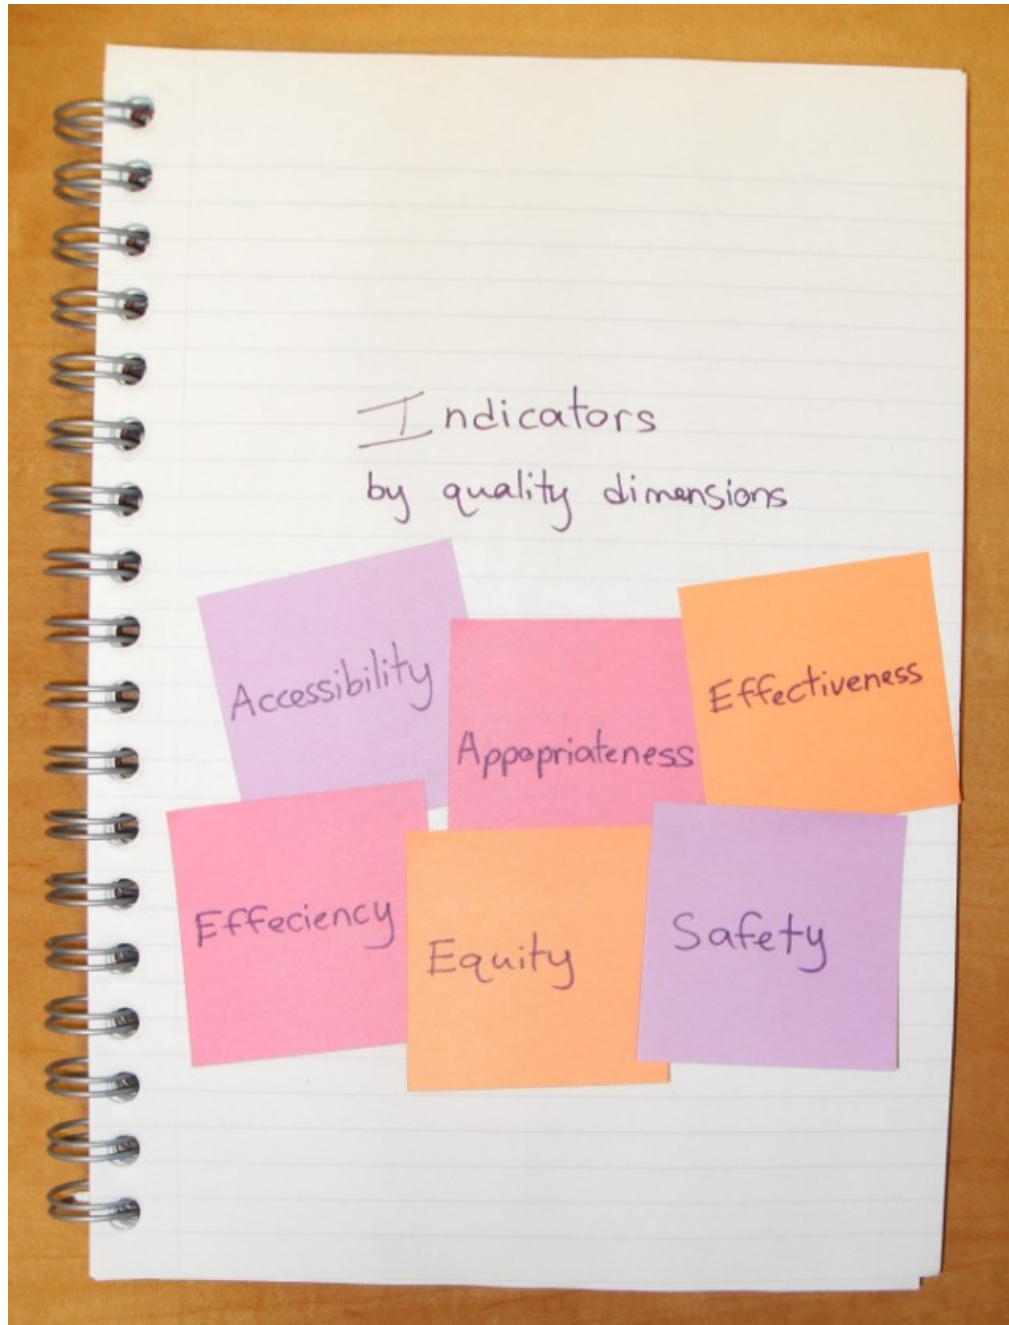 Indicators
by quality dimensions
Accessibility
Appopriateness
Effectiveness
Effeciency
Equity
Safety